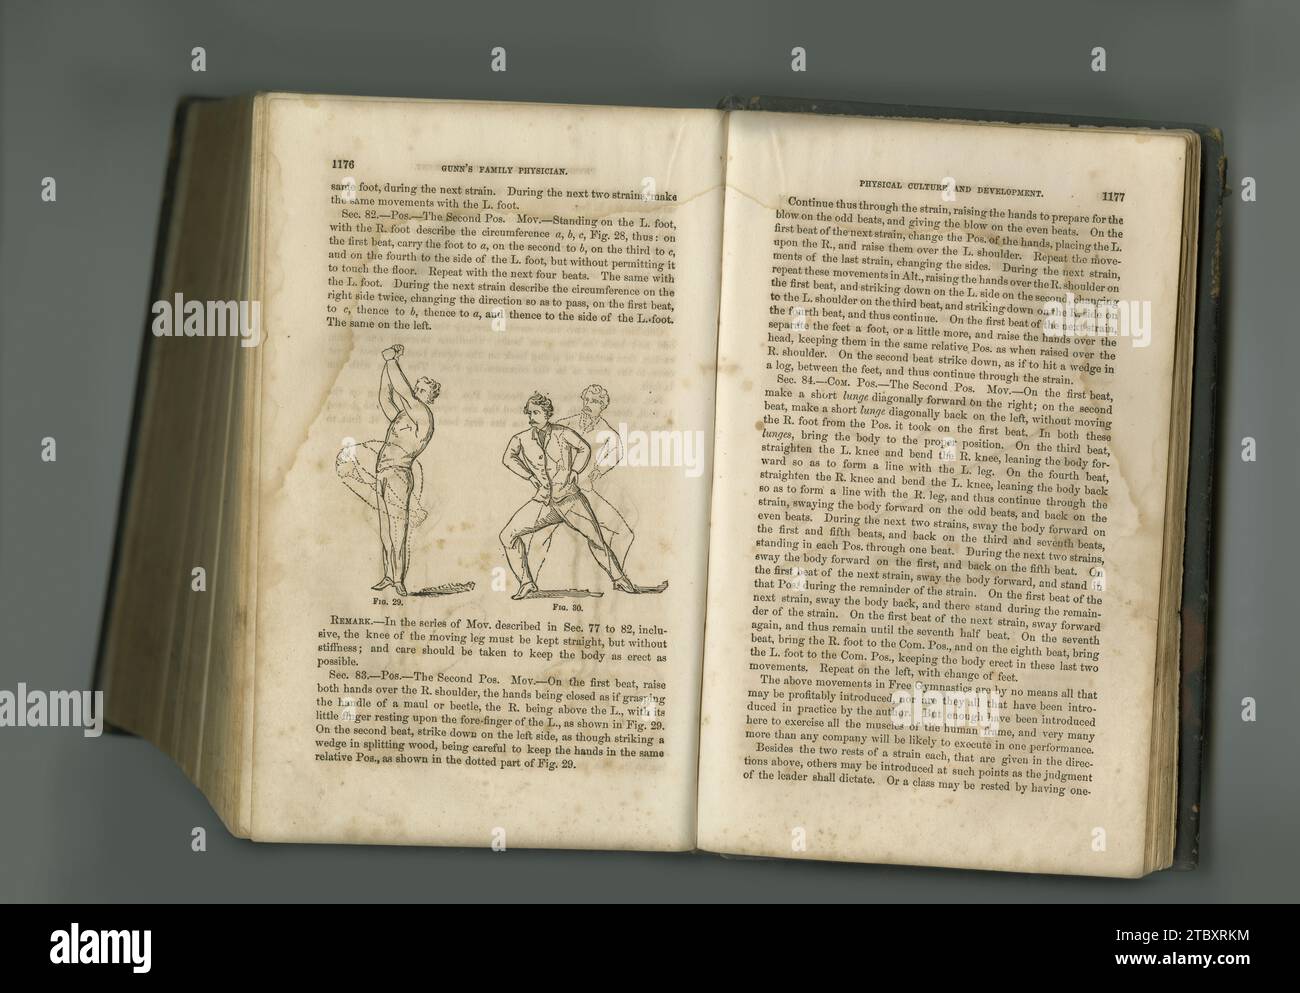 1176
GUNN'S FAMILY PHYSICIAN.
same foot, during the next strain. During the next two strains, make
the same movements with the L. foot.
Sec. 82.—Pos.—The Second Pos. Mov.—Standing on the L. foot,
with the R. foot describe the circumference a, b, c, Fig. 28, thus: on
the first beat, carry the foot to a, on the second to b, on the third to c,
and on the fourth to the side of the L. foot, but without permitting it
to touch the floor. Repeat with the next four beats. The same with
the L. foot. During the next strain describe the circumference on the
right side twice, changing the direction so as to pass, on the first beat,
to c, thence to b, thence to a, and thence to the side of the L. foot.
The same on the left.
FIG. 29.
FIG. 30.
REMARK.—In the series of Mov. described in Sec. 77 to 82, inclu-
sive, the knee of the moving leg must be kept straight, but without
stiffness; and care should be taken to keep the body as erect as
possible.
Sec. 83.—Pos.—The Second Pos. Mov.—On the first beat, raise
both hands over the R. shoulder, the hands being closed as if grasping
the handle of a maul or beetle, the R. being above the L., with its
little finger resting upon the fore-finger of the L., as shown in Fig. 29.
On the second beat, strike down on the left side, as though striking a
wedge in splitting wood, being careful to keep the hands in the same
relative Pos., as shown in the dotted part of Fig. 29.
PHYSICAL CULTURE AND DEVELOPMENT.
1177
Continue thus through the strain, raising the hands to prepare for the
blow on the odd beats, and giving the blow on the even beats. On the
first beat of the next strain, change the Pos. of the hands, placing the L.
upon the R., and raise them over the L. shoulder. Repeat the move-
ments of the last strain, changing the sides. During the next strain,
repeat these movements in Alt., raising the hands over the R. shoulder on
the first beat, and striking down on the L. side on the second, changing
to the L. shoulder on the third beat, and striking down on the R. side on
the fourth beat, and thus continue. On the first beat of the next strain,
separate the feet a foot, or a little more, and raise the hands over the
head, keeping them in the same relative Pos. as when raised over the
R. shoulder. On the second beat strike down, as if to hit a wedge in
a log, between the feet, and thus continue through the strain.
Sec. 84.—COM. Pos.—The Second Pos. Mov.—On the first beat,
make a short lunge diagonally forward on the right; on the second
beat, make a short lunge diagonally back on the left, without moving
the R. foot from the Pos. it took on the first beat. In both these
lunges, bring the body to the proper position. On the third beat,
straighten the L. knee and bend the R. knee, leaning the body for-
ward so as to form a line with the L. leg. On the fourth beat,
straighten the R. knee and bend the L. knee, leaning the body back
so as to form a line with the R. leg, and thus continue through the
strain, swaying the body forward on the odd beats, and back on the
even beats. During the next two strains, sway the body forward on
the first and fifth beats, and back on the third and seventh beats,
standing in each Pos. through one beat. During the next two strains,
sway the body forward on the first, and back on the fifth beat. On
the first beat of the next strain, sway the body forward, and stand in
that Pos. during the remainder of the strain. On the first beat of the
next strain, sway the body back, and there stand during the remain-
der of the strain. On the first beat of the next strain, sway forward
again, and thus remain until the seventh half beat. On the seventh
beat, bring the R. foot to the Com. Pos., and on the eighth beat, bring
the L. foot to the Com. Pos., keeping the body erect in these last two
movements. Repeat on the left, with change of feet.
The above movements in Free Gymnastics are by no means all that
may be profitably introduced, nor are they all that have been intro-
duced in practice by the author. But enough have been introduced
here to exercise all the muscles of the human frame, and very many
more than any company will be likely to execute in one performance.
Besides the two rests of a strain each, that are given in the direc-
tions above, others may be introduced at such points as the judgment
of the leader shall dictate. Or a class may be rested by having one-
alamy
alamy
alamy
alamy
alamy
alamy
Image ID: 2TBXRKM
www.alamy.com